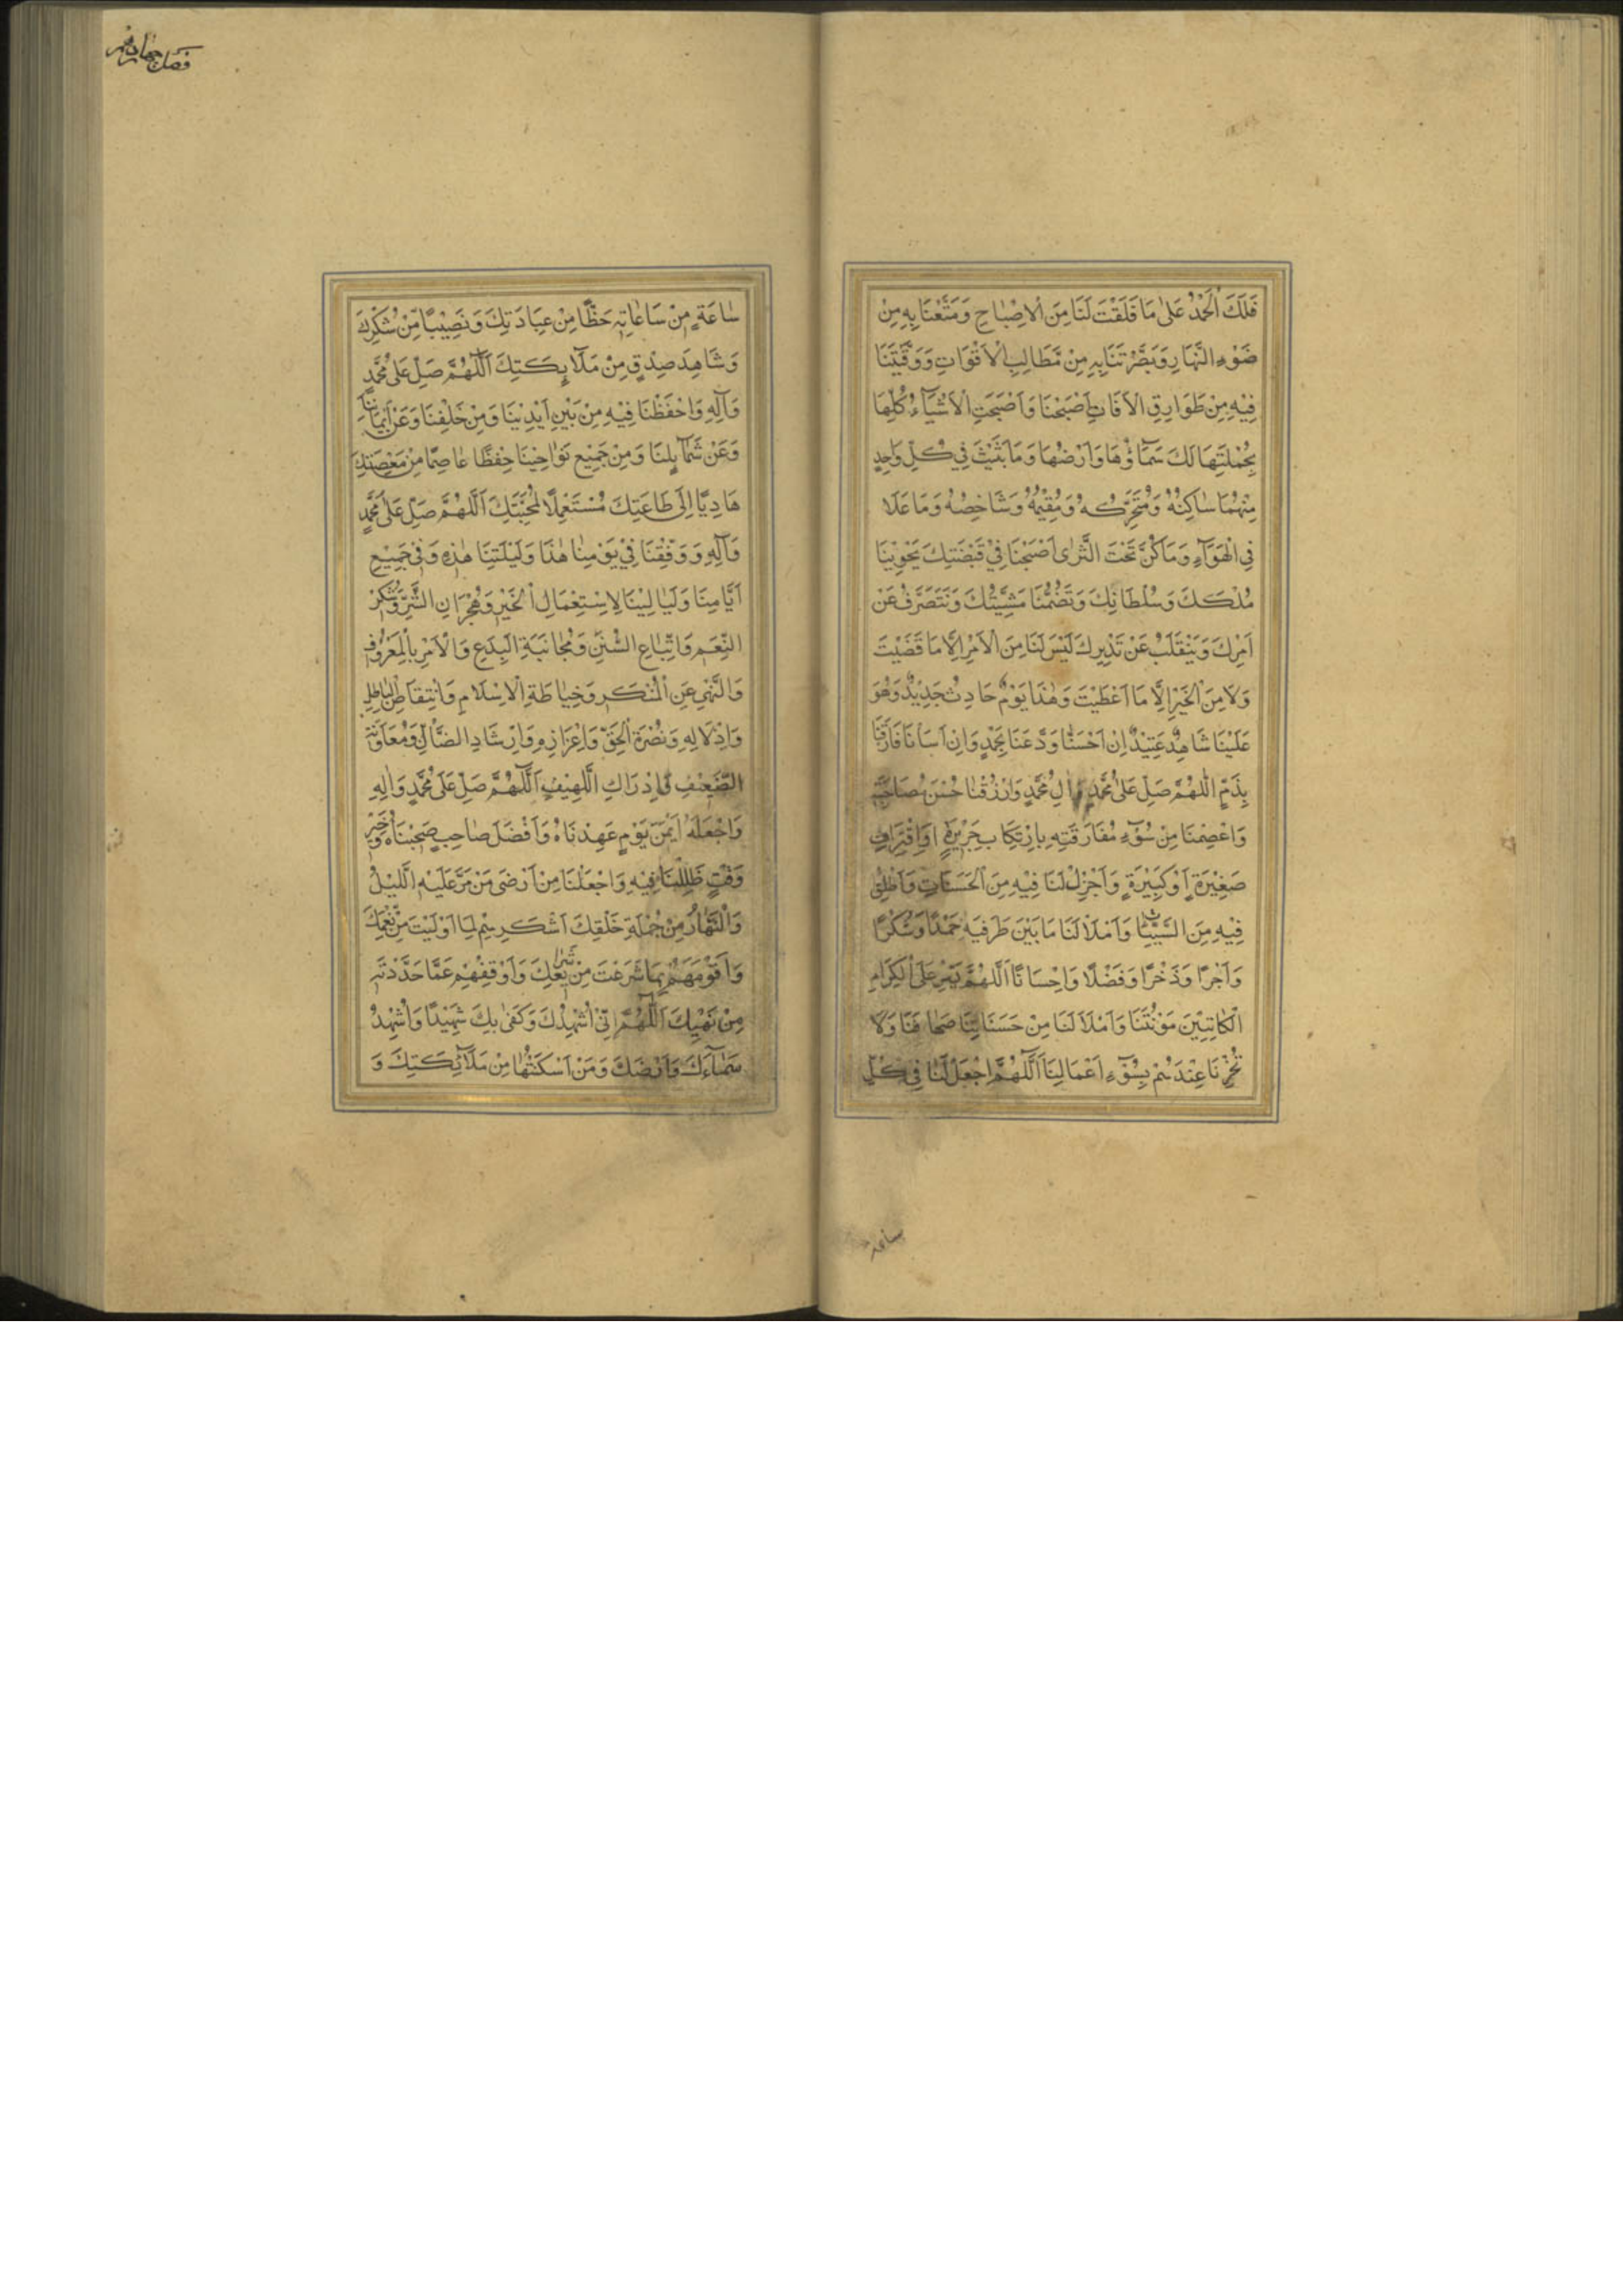 فَلَكَ الْحَمْدُ عَلٰى مَا فَلَقْتَ لَنَا مِنَ الْاِصْبَاحِ وَمَتَّعْتَنَا بِهِ مِنْ
ضَوْءِ النَّهَارِ وَبَصَّرْتَنَا بِهِ مِنْ مَطَالِبِ الْاَقْوَاتِ وَوَقَيْتَنَا
فِيْهِ مِنْ طَوَارِقِ الْاٰفَاتِ اَصْبَحْنَا وَاَصْبَحَتِ الْاَشْيَآءُ كُلُّهَا
بِجُمْلَتِهَا لَكَ سَمَآؤُهَا وَاَرْضُهَا وَمَا بَثَثْتَ فِيْ كُلِّ وَاحِدٍ
مِنْهُمَا سَاكِنُهُ وَمُتَحَرِّكُهُ وَمُقِيْمُهُ وَشَاخِصُهُ وَمَا عَلَا
فِي الْهَوَآءِ وَمَا كَنَّ تَحْتَ الثَّرٰى اَصْبَحْنَا فِيْ قَبْضَتِكَ يَحْوِيْنَا
مُلْكُكَ وَسُلْطَانُكَ وَتَضُمُّنَا مَشِيَّتُكَ وَنَتَصَرَّفُ عَنْ
اَمْرِكَ وَنَتَقَلَّبُ عَنْ تَدْبِيْرِكَ لَيْسَ لَنَا مِنَ الْاَمْرِ اِلَّا مَا قَضَيْتَ
وَلَا مِنَ الْخَيْرِ اِلَّا مَا اَعْطَيْتَ وَهٰذَا يَوْمٌ حَادِثٌ جَدِيْدٌ وَهُوَ
عَلَيْنَا شَاهِدٌ عَتِيْدٌ اِنْ اَحْسَنَّا وَدَّعَنَا بِحَمْدٍ وَاِنْ اَسَأْنَا فَارَقَنَا
بِذَمٍّ اَللّٰهُمَّ صَلِّ عَلٰى مُحَمَّدٍ وَاٰلِ مُحَمَّدٍ وَارْزُقْنَا حُسْنَ مُصَاحَبَتِهِ
وَاعْصِمْنَا مِنْ سُوْٓءِ مُفَارَقَتِهِ بِارْتِكَابِ جَرِيْرَةٍ اَوِ اقْتِرَافِ
صَغِيْرَةٍ اَوْ كَبِيْرَةٍ وَاَجْزِلْ لَنَا فِيْهِ مِنَ الْحَسَنَاتِ وَاَخْلِنَا
فِيْهِ مِنَ السَّيِّئَاتِ وَامْلَأْ لَنَا مَا بَيْنَ طَرَفَيْهِ حَمْدًا وَشُكْرًا
وَاَجْرًا وَذُخْرًا وَفَضْلًا وَاِحْسَانًا اَللّٰهُمَّ يَسِّرْ عَلَى الْكِرَامِ
الْكَاتِبِيْنَ مَؤُنَتَنَا وَامْلَأْ لَنَا مِنْ حَسَنَاتِنَا صَحَائِفَنَا وَلَا
تُخْزِنَا عِنْدَهُمْ بِسُوْٓءِ اَعْمَالِنَا اَللّٰهُمَّ اجْعَلْ لَنَا فِيْ كُلِّ
ساعة
سَاعَةٍ مِنْ سَاعَاتِهِ حَظًّا مِنْ عِبَادَتِكَ وَنَصِيْبًا مِنْ شُكْرِكَ
وَشَاهِدَ صِدْقٍ مِنْ مَلَآئِكَتِكَ اَللّٰهُمَّ صَلِّ عَلٰى مُحَمَّدٍ
وَاٰلِهِ وَاحْفَظْنَا فِيْهِ مِنْ بَيْنِ اَيْدِيْنَا وَمِنْ خَلْفِنَا وَعَنْ اَيْمَانِنَا
وَعَنْ شَمَآئِلِنَا وَمِنْ جَمِيْعِ نَوَاحِيْنَا حِفْظًا عَاصِمًا مِنْ مَعْصِيَتِكَ
هَادِيًا اِلٰى طَاعَتِكَ مُسْتَعْمِلًا لِمَحَبَّتِكَ اَللّٰهُمَّ صَلِّ عَلٰى مُحَمَّدٍ
وَاٰلِهِ وَوَفِّقْنَا فِيْ يَوْمِنَا هٰذَا وَلَيْلَتِنَا هٰذِهِ وَفِيْ جَمِيْعِ
اَيَّامِنَا وَلَيَالِيْنَا لِاسْتِعْمَالِ الْخَيْرِ وَهِجْرَانِ الشَّرِّ وَشُكْرِ
النِّعَمِ وَاتِّبَاعِ السُّنَنِ وَمُجَانَبَةِ الْبِدَعِ وَالْاَمْرِ بِالْمَعْرُوْفِ
وَالنَّهْيِ عَنِ الْمُنْكَرِ وَحِيَاطَةِ الْاِسْلَامِ وَانْتِقَاصِ الْبَاطِلِ
وَاِذْلَالِهِ وَنُصْرَةِ الْحَقِّ وَاِعْزَازِهِ وَاِرْشَادِ الضَّآلِّ وَمُعَاوَنَةِ
الضَّعِيْفِ وَاِدْرَاكِ اللَّهِيْفِ اَللّٰهُمَّ صَلِّ عَلٰى مُحَمَّدٍ وَاٰلِهِ
وَاجْعَلْهُ اَيْمَنَ يَوْمٍ عَهِدْنَاهُ وَاَفْضَلَ صَاحِبٍ صَحِبْنَاهُ وَخَيْرَ
وَقْتٍ ظَلِلْنَا فِيْهِ وَاجْعَلْنَا مِنْ اَرْضٰى مَنْ مَرَّ عَلَيْهِ اللَّيْلُ
وَالنَّهَارُ مِنْ جُمْلَةِ خَلْقِكَ اَشْكَرِهِمْ لِمَا اَوْلَيْتَ مِنْ نِعَمِكَ
وَاَقْوَمَهُمْ بِمَا شَرَعْتَ مِنْ شَرَائِعِكَ وَاَوْقَفَهُمْ عَمَّا حَذَّرْتَ
مِنْ نَهْيِكَ اَللّٰهُمَّ اِنِّيْ اُشْهِدُكَ وَكَفٰى بِكَ شَهِيْدًا وَاُشْهِدُ
سَمَآءَكَ وَاَرْضَكَ وَمَنْ اَسْكَنْتَهُمَا مِنْ مَلَآئِكَتِكَ وَ